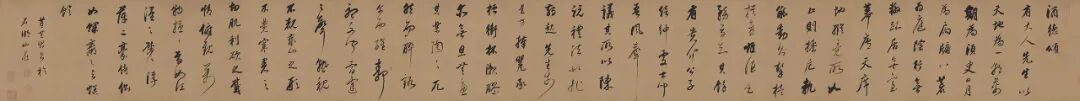 酒德頌
有大人先生以
天地為一朝萬期
為須臾日月
為扃牖八荒
為庭衢行無
轍跡居無室
廬幕天席
地縱意所如
止則操卮執
觚動則挈榼
提壺惟酒是
務焉知其餘
有貴介公子
縉紳處士聞
吾風聲
議其所以陳
說禮法是非
鋒起先生於
是方捧罌承
槽銜杯漱醪
無思無慮
其樂陶陶兀
然而醉豁
爾而醒靜
聽不聞雷霆
之聲熟視
不睹泰山之形
不覺寒暑之
切肌利欲之感
情俯觀萬
物擾擾焉若江
海之載浮
萍二豪侍側
焉如蜾蠃之與螟
蛉